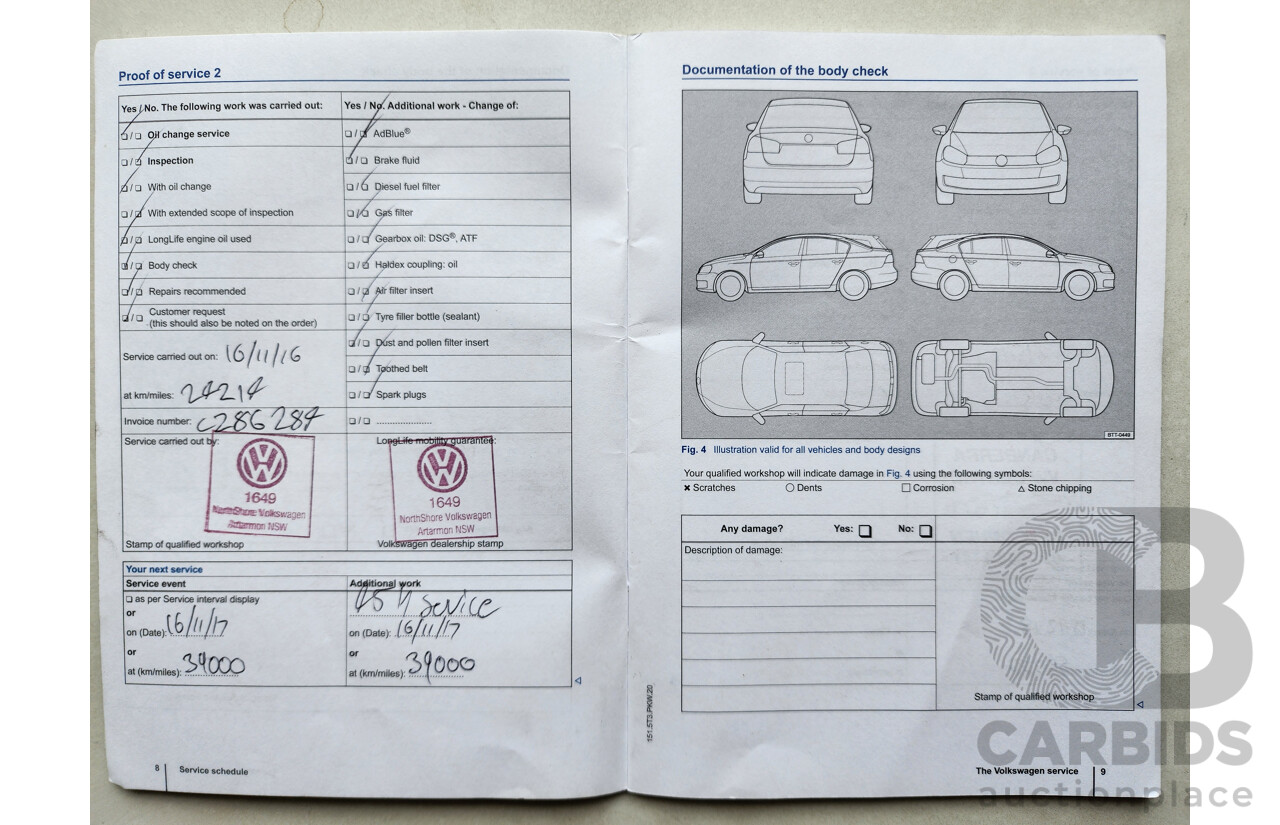 Proof of service 2
Yes / No. The following work was carried out:
Yes / No. Additional work - Change of:
Oil change service
Inspection
With oil change
With extended scope of inspection
LongLife engine oil used
Body check
Repairs recommended
Customer request
(this should also be noted on the order)
AdBlue®
Brake fluid
Diesel fuel filter
Gas filter
Gearbox oil: DSG®, ATF
Haldex coupling: oil
Air filter insert
Tyre filler bottle (sealant)
Dust and pollen filter insert
Toothed belt
Spark plugs
Service carried out on: 16/11/16
at km/miles: 24214
Invoice number: C286284
Service carried out by:
1649
NorthShore Volkswagen
Artarmon NSW
Stamp of qualified workshop
LongLife mobility guarantee:
1649
NorthShore Volkswagen
Artarmon NSW
Volkswagen dealership stamp
Your next service
Service event
as per Service interval display
or
on (Date): 16/11/17
or
at (km/miles): 39000
Additional work
Service
on (Date): 16/11/17
or
at (km/miles): 39000
8 Service schedule
Documentation of the body check
BTT-0449
Fig. 4 Illustration valid for all vehicles and body designs
Your qualified workshop will indicate damage in Fig. 4 using the following symbols:
× Scratches ○ Dents □ Corrosion △ Stone chipping
Any damage? Yes: No:
Description of damage:
Stamp of qualified workshop
151.5T3.PKW.20
The Volkswagen service 9
CB
CARBIDS
auctionplace